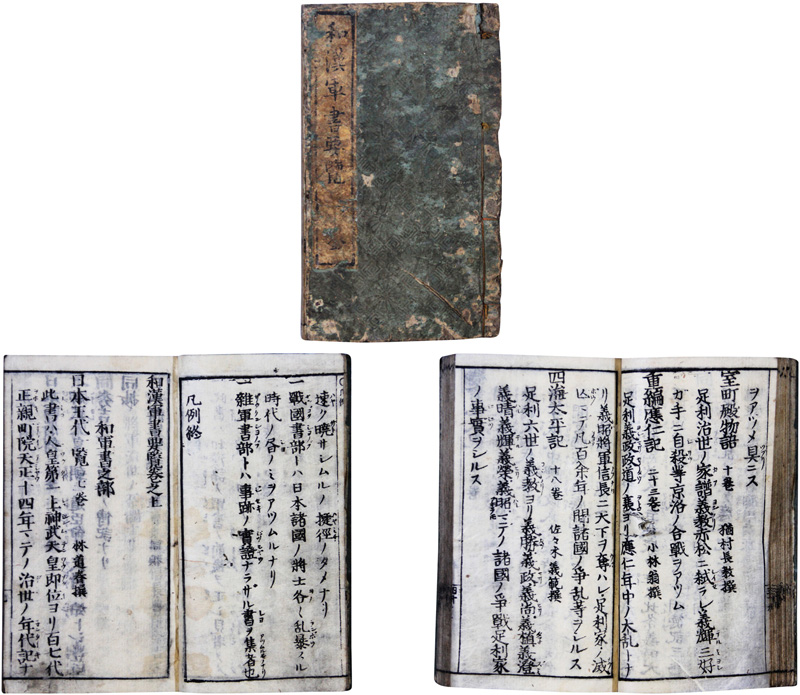 和漢軍書要覧
速ク暁サシムルノ捷径ノタメナリ
一戦國書部トハ日本諸國ノ將士各〻乱暴スル
時代ノ書ノミヲアツムルナリ
一雜軍書部トハ事跡ノ實證ナラサル書ヲ集者也
凡例終
和漢軍書要覧巻之上
和軍書之部
日本王代一覧 七巻 林道春撰
此書ハ人皇第一主神武天皇即位ヨリ百七代
正親町院天正十四年マテノ治世ノ年代記ナ
ヲアツメ具ニス
室町殿物語 十巻 猶村長教撰
足利治世ノ家譜義教赤松ニ弑ラレ義輝三好
ガ手ニ自殺等京洛ノ合戰ヲアツム
重編應仁記 二十三巻 小林翁撰
足利義政政道ノ裏ヨリ應仁年中ノ大乱トナ
リ義昭將軍信長ニ天下ヲ奪ハレ足利家ノ滅
マテ凡百余年ノ間諸國ノ争乱等ヲシルス
四海太平記 十八巻 佐々木義範撰
足利六世ノ義教ヨリ義勝義政義尚義稙義澄
義晴義輝義榮義昭マテノ諸國ノ爭戰足利家
ノ事實ヲシルス